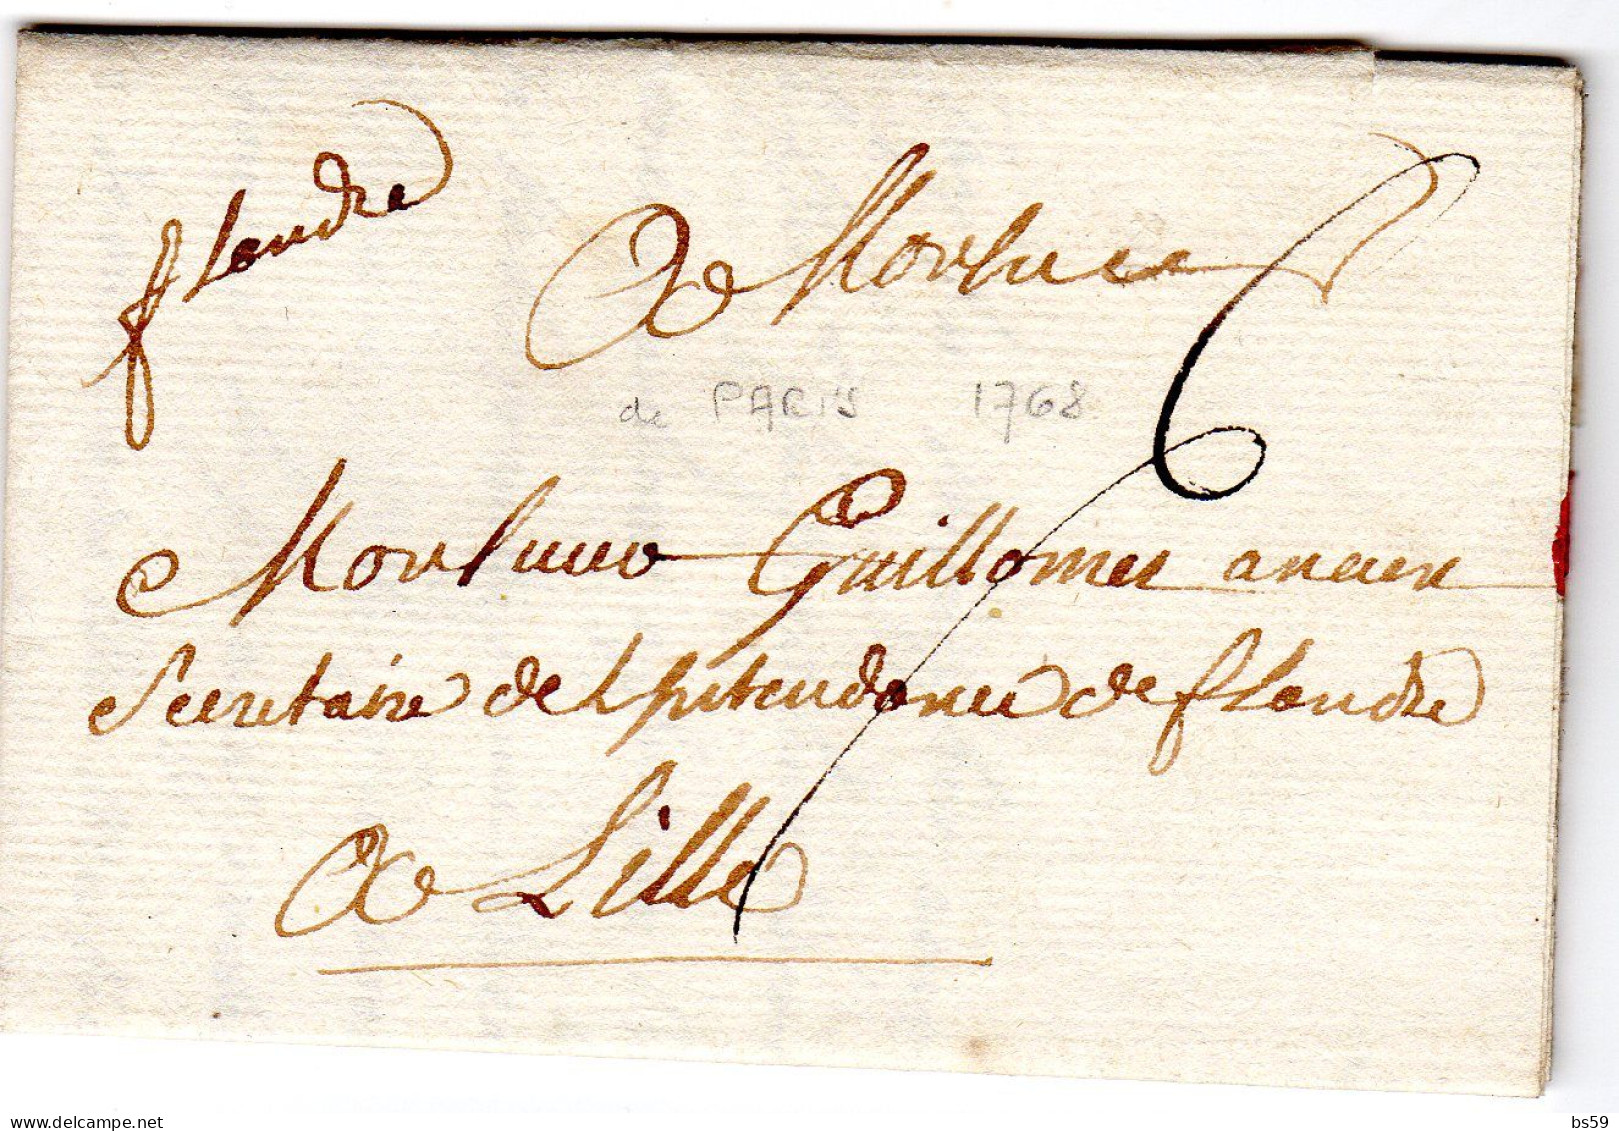 flandre
A Monsieur
6
de PARIS 1768
Monsieur Guillomes ancien
Secretaire de Lintendance de flandre
A Lille
www.delcampe.net
bs59